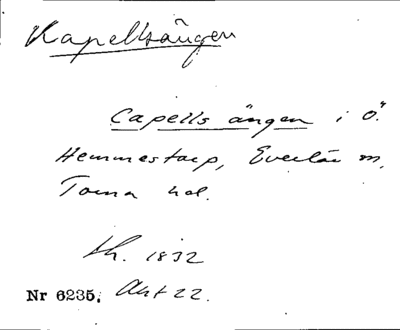 Kapellsängen
Capells ängen i Ö.
Hemmestorp, Everlöv sn,
Torna hd.
Lh. 1832
Nr 6235, Akt 22.